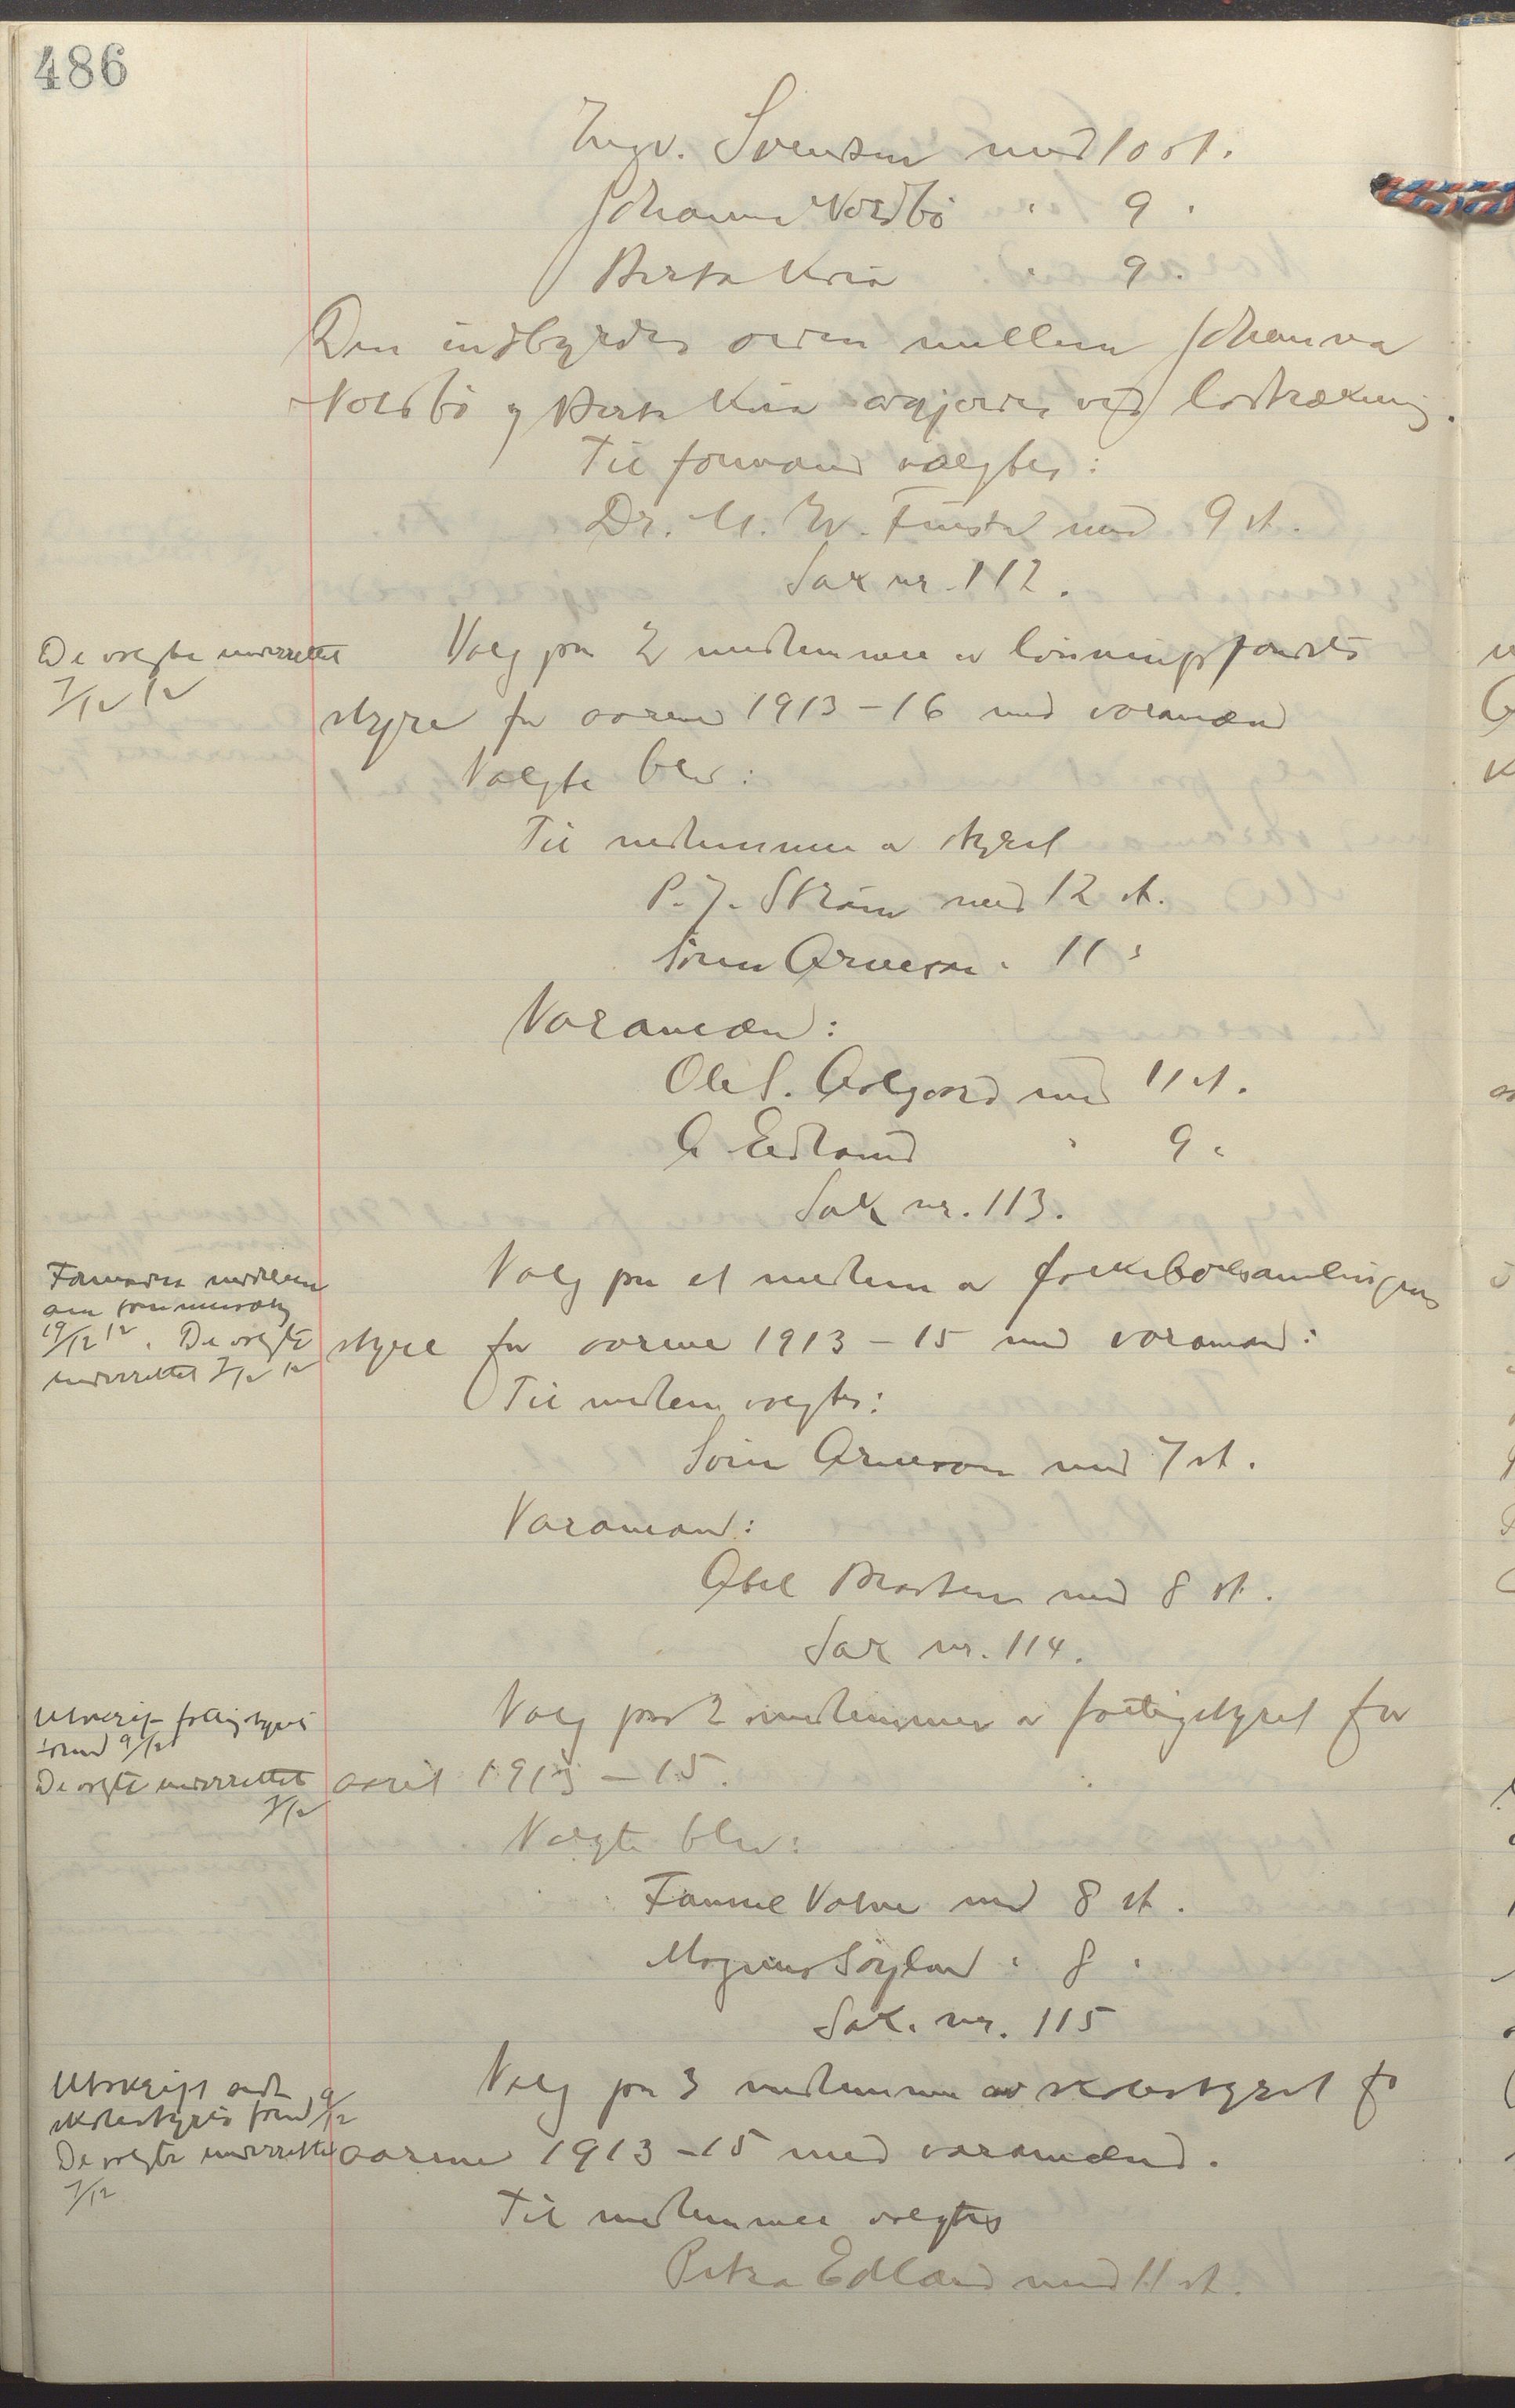 486
Ingv. Svendsen med 10 st.
Johanna Nordbö " 9 "
Berta Kvia 9 "
Den indbyrdes orden mellem Johanna
Nordbö og Berta Kvia avgjordes ved lodtrækning.
Til formand valgtes:
Dr. M. W. med 9 st.
Sak nr. 112.
De valgte underrettet
7/12 12
Valg paa 2 medlemmer av lönningsfondets
styre for aarene 1913-16 med varamænd
Valgte blev:
Til medlemmer av styret
P. J. Ström med 12 st.
Sören Arneson " 11 "
Varamænd:
Ole S. Aalgaard med 11 st.
A Edland " 9 "
Sak nr. 113.
Formanden meddelelse
om
19/12 12. De valgte
underrettet 7/12 12
Valg paa et medlem av folkeboksamlingens
styre for aarene 1913-15 med varamand:
Til medlem valgtes:
Sören Arneson med 7 st.
Varamand:
Abel Braaten med 8 st.
Sak nr. 114.
Utskrift fattigstyrets
formd 9/12
De valgte underrettet
7/12
Valg paa 2 medlemmer av fattigstyret for
aaret 1913-15.
Valgte blev:
Fannie Vatne med 8 st.
Magnus Söyland " 8 "
Sak. nr. 115
Utskrift sendt
skolestyrets formd 9/12
De valgte underrettet
7/12
Valg paa 3 medlemmer av skolestyret for
aarene 1913-15 med varamænd.
Til medlemmer valgtes
Petra Edland med 11 st.